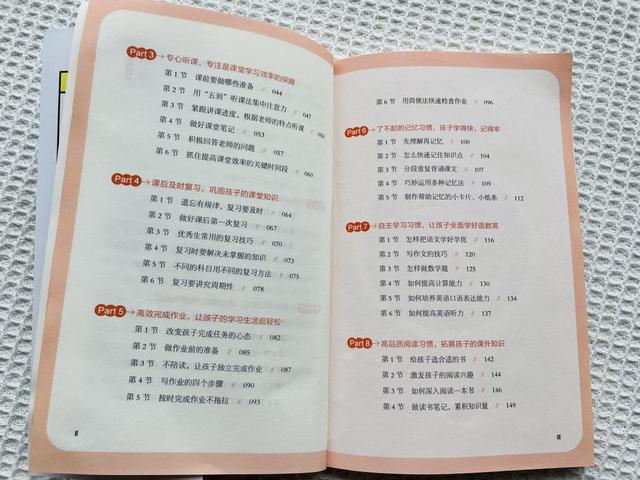 Part 3 专心听课，专注是课堂学习效率的保障
第1节 课前要做哪些准备 // 044
第2节 用“五到”听课法集中注意力 // 047
第3节 紧跟讲课进度，根据老师的特点听课 // 050
第4节 做好课堂笔记 // 053
第5节 积极回答老师的问题 // 057
第6节 抓住提高课堂效率的关键时间段 // 060
Part 4 课后及时复习，巩固孩子的课堂知识
第1节 遗忘有规律，复习要及时 // 064
第2节 做好课后第一次复习 // 067
第3节 优秀生常用的复习技巧 // 070
第4节 复习时要解决未掌握的知识 // 073
第5节 不同的科目用不同的复习方法 // 075
第6节 复习要讲究周期性 // 078
Part 5 高效完成作业，让孩子的学习生活超轻松
第1节 改变孩子完成任务的心态 // 082
第2节 做作业前的准备 // 085
第3节 不陪读，让孩子独立完成作业 // 087
第4节 写作业的四个步骤 // 090
第5节 按时完成作业不拖拉 // 093
II
第6节 用简便法快速检查作业 // 096
Part 6 了不起的记忆习惯，孩子学得快，记得牢
第1节 先理解再记忆 // 100
第2节 怎么快速记住知识点 // 104
第3节 分段重复背诵课文 // 107
第4节 巧妙运用多种记忆法 // 109
第5节 制作帮助记忆的小卡片、小纸条 // 112
Part 7 自主学习习惯，让孩子全面学好语数英
第1节 怎样把语文学好学优 // 116
第2节 写作文的技巧 // 120
第3节 怎样做数学题 // 125
第4节 如何提高计算能力 // 130
第5节 如何培养英语口语表达能力 // 134
第6节 如何提高英语听力 // 137
Part 8 高品质阅读习惯，拓展孩子的课外知识
第1节 给孩子选合适的书 // 142
第2节 激发孩子的阅读兴趣 // 144
第3节 如何深入阅读一本书 // 146
第4节 做读书笔记，累积知识量 // 149
III